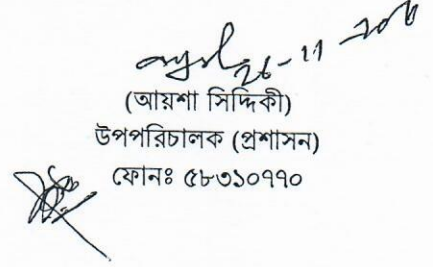 26-11
(আয়শা সিদ্দিকী)
উপপরিচালক (প্রশাসন)
ফোনঃ ৫৮৩১০৭৭০